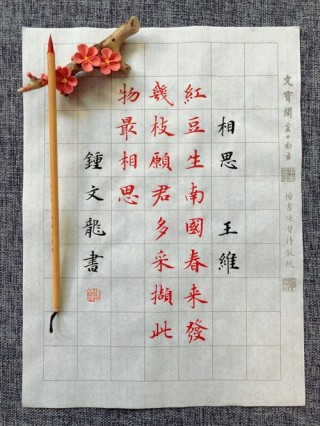 相思 王維
紅豆生南國春来發
幾枝願君多采擷此
物最相思
鍾文龍書